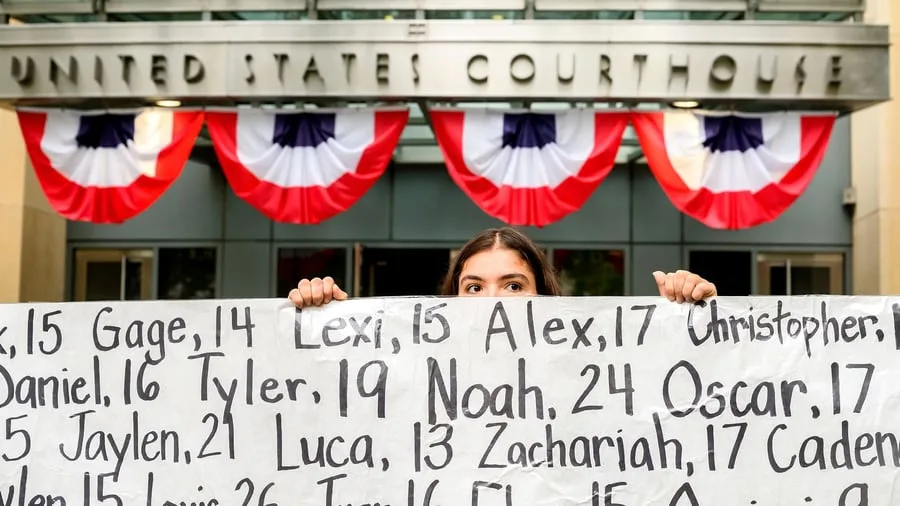 UNITED STATES COURTHOUSE
, 15 Gage, 14 Lexi, 15 Alex, 17 Christopher,
Daniel, 16 Tyler, 19 Noah, 24 Oscar, 17
5 Jaylen, 21 Luca, 13 Zachariah, 17 Caden
15 26 16 15 9